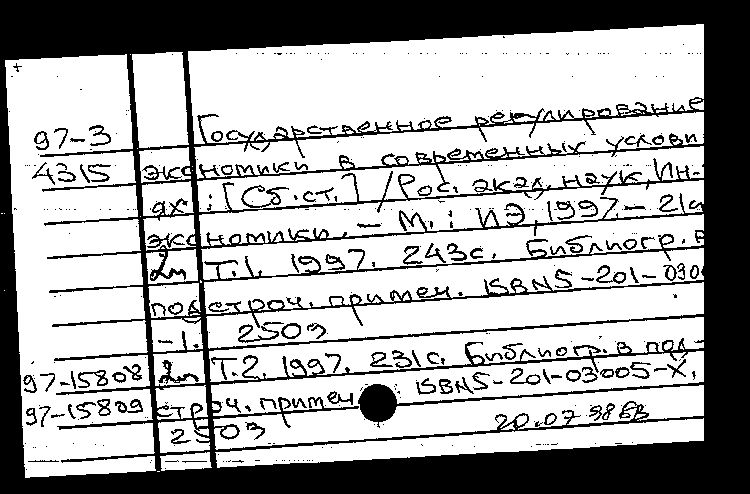 97-3 Государственное регулирование
4315 экономики в современных услови
ях : [Сб.ст.] / Рос. акад. наук, Ин-
экономики. - М. : ИЭ, 1997. -
2т Т.1. 1997. 243с. Библиогр. в
подстроч. примеч. ISBN5-201-030
-1. 250э
97-15808 2т Т.2. 1997. 231с. Библиогр. в под-
97-15809 строч. примеч. ISBN5-201-03005-X.
250э 20.07 98